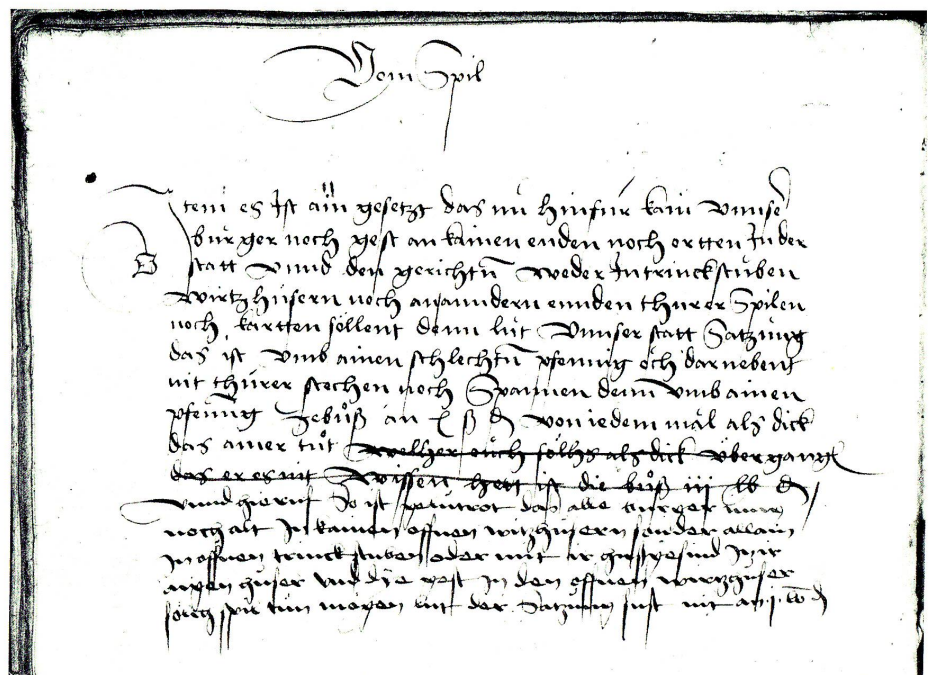 Vom Spil
Item es Ist ain gesetzt das nu hinfur kain Vnnser
burger noch gest an kainen enden noch ortten In der
statt Vnnd den gerichtn Weder In trinckstuben
Wirtzhüsern noch an anndern ennden thürer Spilen
noch kartten söllent denn lut Vnnser statt Satzung
das ist Vmb ainen schlechtn pfenning och darnebent
nit thürer stechen noch Spannen denn Vmb ainen
pfenig Zebůß an ß d von iedem mäl als dick
das ainer tůt Welher öuch sölhs als dick übergangt
das er es nit Wissen hett ist die bůß iij lb d
Vnnd hieruf So ist das alle burger
noch alt In kainen offnen wirtzhüsern sonder allain
In offnen trinckstuben oder mit ir husgesind In ir
aigen hüser Vnd dye gest In den offnen wirtzhüser
spil tun mögen lut der Satzung sust nit an j lb d